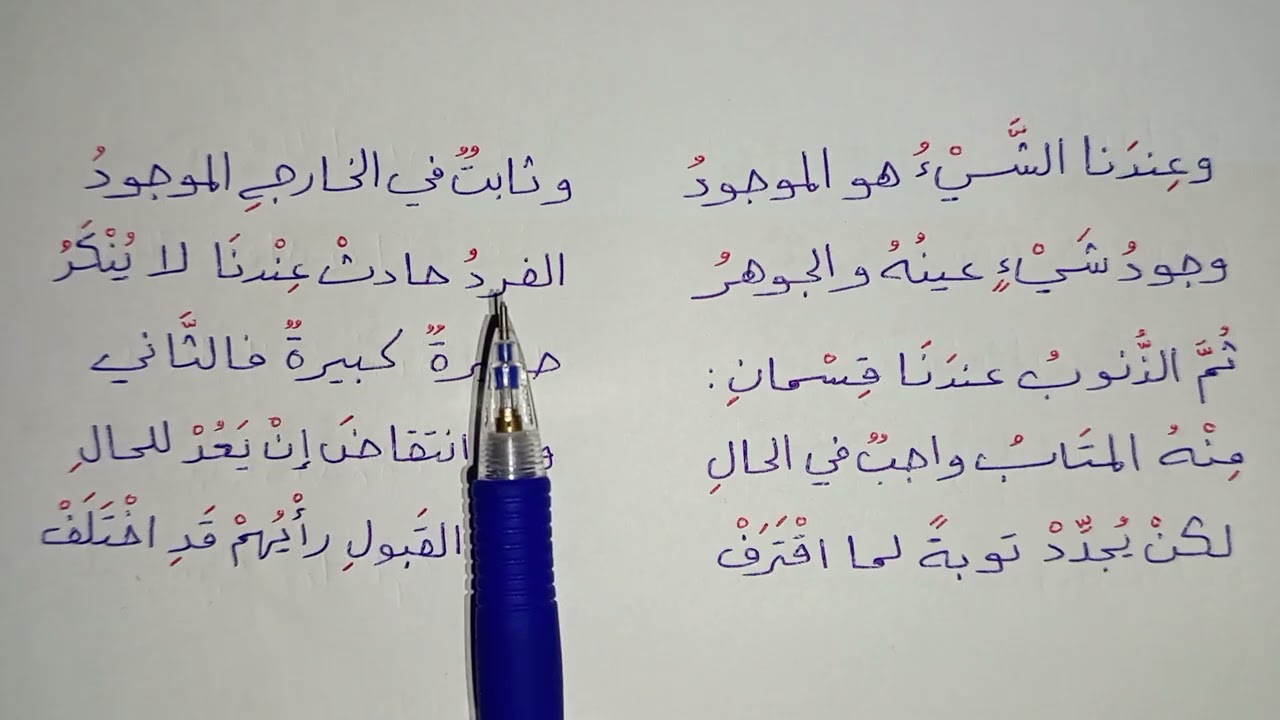 وعِندَنا الشَّيْءُ هو الموجودُ وثابتٌ في الخارجِ الموجودُ
وجودُ شَيْءٍ عينُهُ والجوهرُ الفردُ حادثْ عِنْدنَا لا يُنْكَرُ
ثُمَّ الذُّنوبُ عندَنَا قِسْمانِ: كبيرةٌ فالثَّاني
مِنْهُ المتَابُ واجبٌ في الحالِ انتقاضَ إنْ يَعُدْ للحالِ
لكنْ يُجدِّدْ توبةً لما اقْتَرَفْ القَبولِ رأْيُهمْ قَدِ اخْتَلَفْ